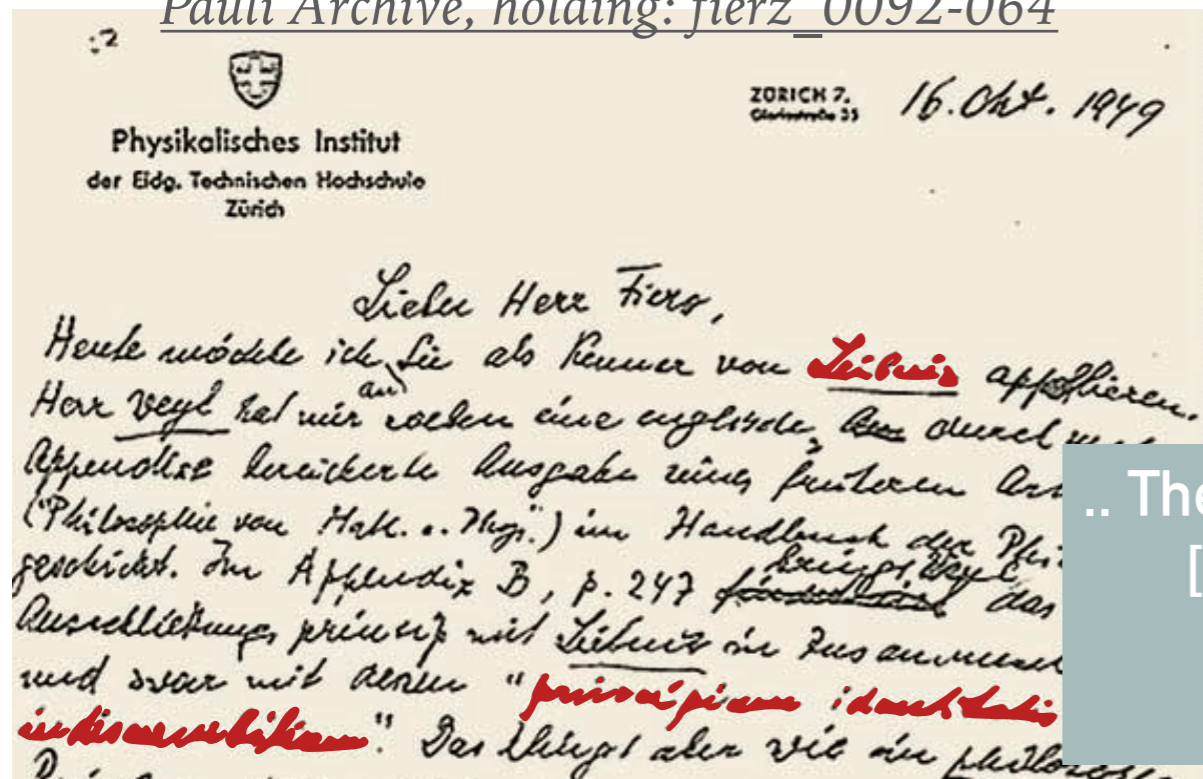 Pauli Archive, holding: fierz_0092-064
:2
Physikalisches Institut
der Eidg. Technischen Hochschule
Zürich
ZÜRICH 7.
Gloriastraße 35
16. Okt. 1949
Lieber Herr Fierz,
Heute möchte ich Sie als Kenner von Leibniz appellieren.
an
Herr Weyl hat mir soeben eine englische, durch
Appendices bereicherte Ausgabe seines früheren
("Philosophie von Math. u. Phys.") im Handbuch der
bringt Weyl
geschickt. Im Appendix B, p. 247 das
Ausschließungsprinzip mit Leibniz in
und zwar mit dessen "principium identitatis
indiscernibilium". Das klingt aber wie ein
.. The
[